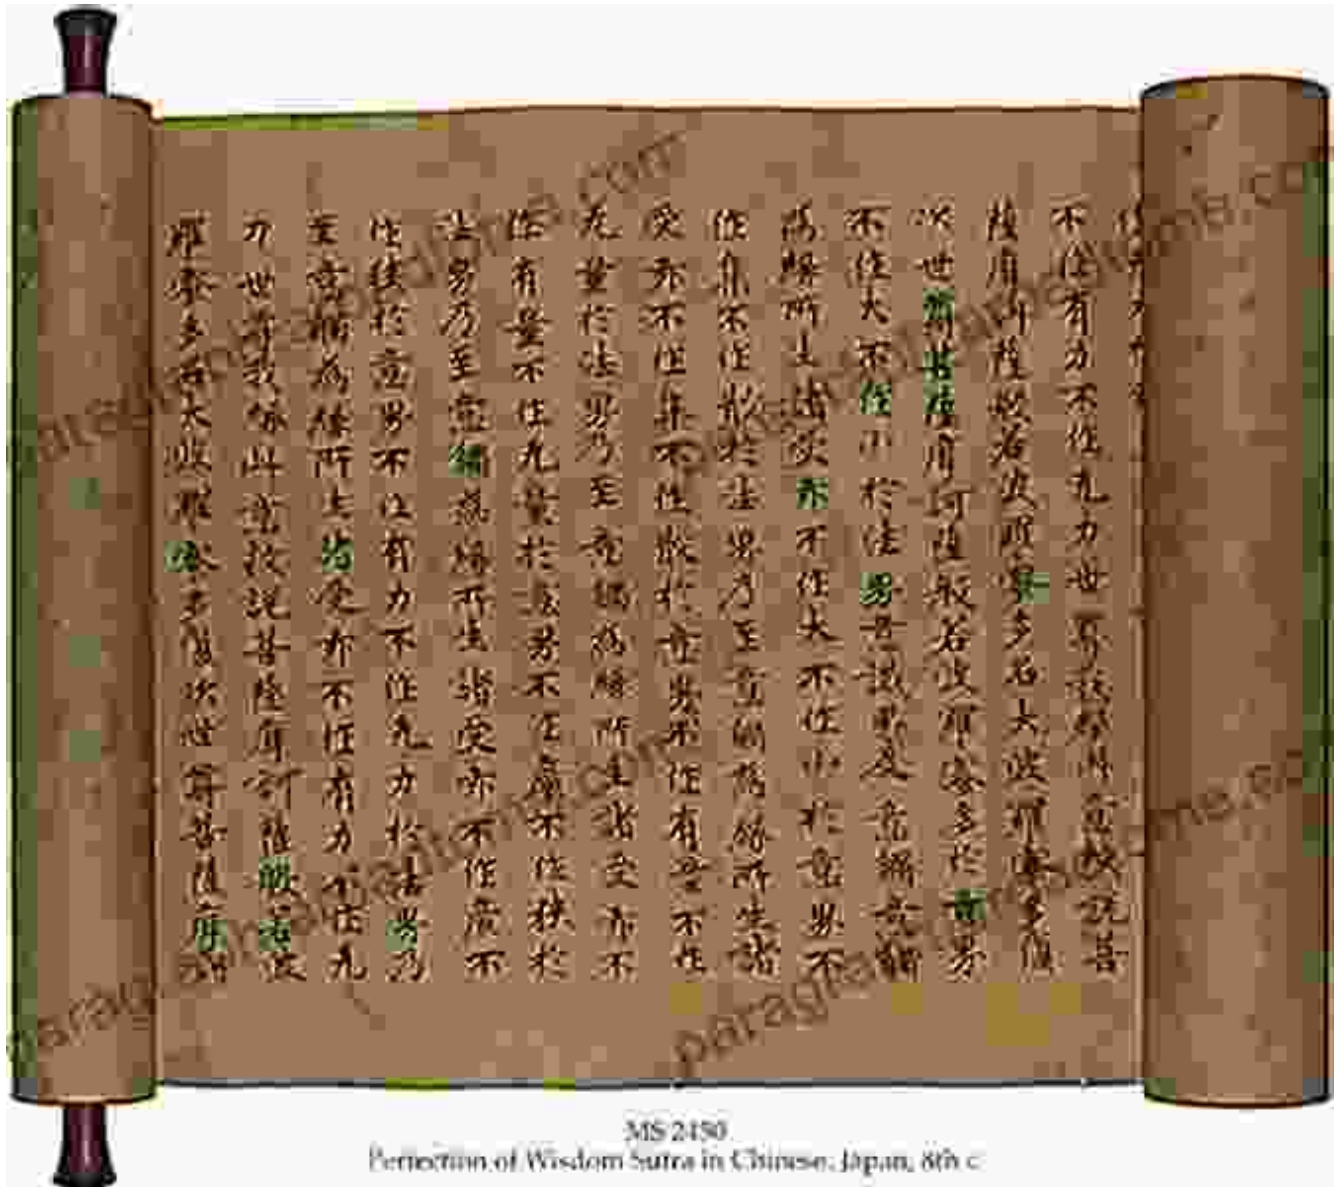 不作有力不作无力世尊我緣此意故說菩
薩摩訶薩般若波羅蜜多名大波羅蜜多復
次世尊若菩薩摩訶薩般若波羅蜜多於意界
不作大不作小於法界意識界及意觸意觸
為緣所生諸受亦不作大不作小於意界不
作集不作散於法界乃至意觸為緣所生諸
受亦不作集不作散於意界不作有量不作
无量於法界乃至意觸為緣所生諸受亦不
作有量不作无量於意界不作廣不作狹於
法界乃至意觸為緣所生諸受亦不作廣不
作狹於意界不作有力不作无力於法界乃
至意觸為緣所生諸受亦不作有力不作无
力世尊我緣此意故說菩薩摩訶薩般若波
羅蜜多名大波羅蜜多復次世尊若菩薩摩訶
MS 2450
Perfection of Wisdom Sutra in Chinese. Japan, 8th c